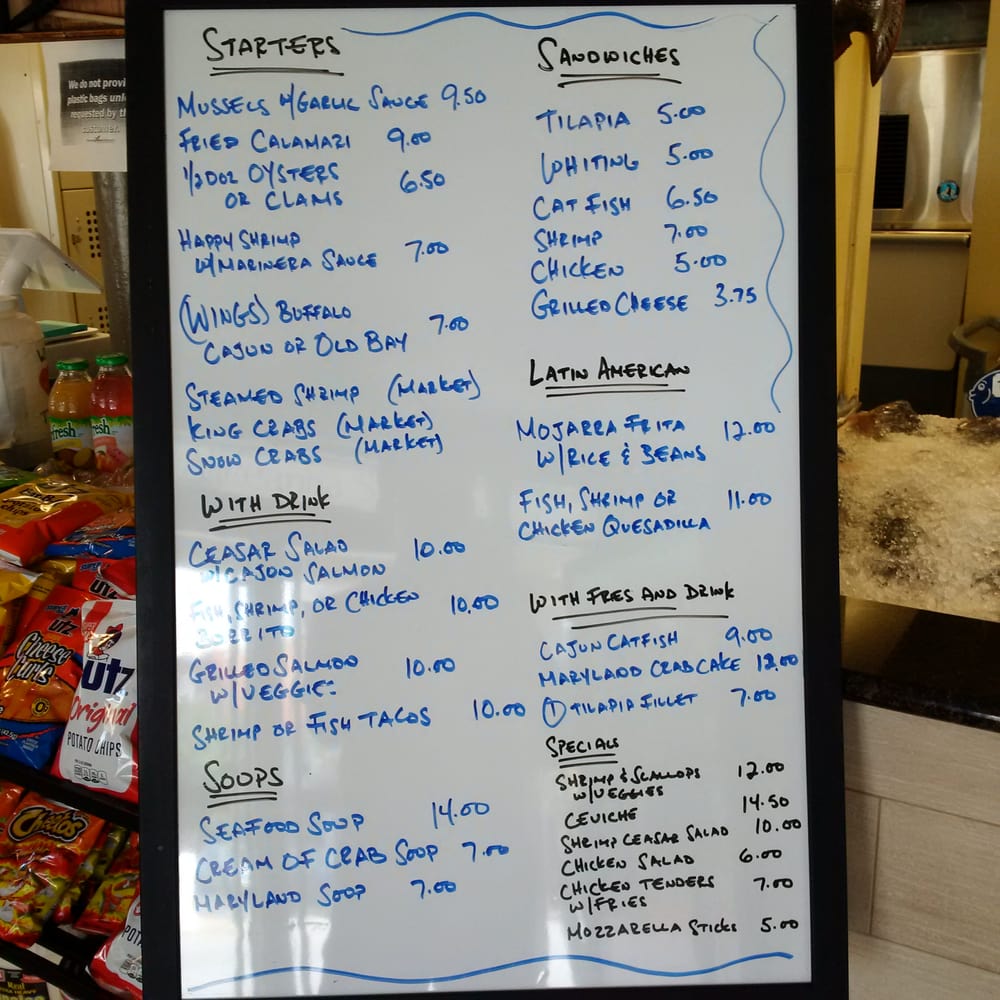 STARTERS
MUSSELS W/GARLIC SAUCE 9.50
FRIED CALAMAZI 9.00
1/2 DOZ OYSTERS
OR CLAMS 6.50
HAPPY SHRIMP
W/MARINERA SAUCE 7.00
(WINGS) BUFFALO
CAJUN OR OLD BAY 7.00
STEAMED SHRIMP (MARKET)
KING CRABS (MARKET)
SNOW CRABS (MARKET)
WITH DRINK
CEASAR SALAD 10.00
W/CAJON SALMON
FISH, SHRIMP, OR CHICKEN 10.00
BURRITO
GRILLED SALMON 10.00
W/VEGGIES
SHRIMP OR FISH TACOS 10.00
SOUPS
SEAFOOD SOUP 14.00
CREAM OF CRAB SOUP 7.00
MARYLAND SOUP 7.00
SANDWICHES
TILAPIA 5.00
WHITING 5.00
CAT FISH 6.50
SHRIMP 7.00
CHICKEN 5.00
GRILLED CHEESE 3.75
LATIN AMERICAN
MOJARRA FRITA 12.00
W/RICE & BEANS
FISH, SHRIMP OR 11.00
CHICKEN QUESADILLA
WITH FRIES AND DRINK
CAJUN CATFISH 9.00
MARYLAND CRAB CAKE 12.00
(1) TILAPIA FILLET 7.00
SPECIALS
SHRIMP & SCALLOPS 12.00
W/VEGGIES
CEVICHE 14.50
SHRIMP CEASAR SALAD 10.00
CHICKEN SALAD 6.00
CHICKEN TENDERS 7.00
W/FRIES
MOZZARELLA STICKS 5.00
We do not provi
plastic bags unle
requested by th
customer.
fresh
esh
UTZ
Utz
Cheese
Curls
utz
Original
POTATO CHIPS
Cheetos
POT